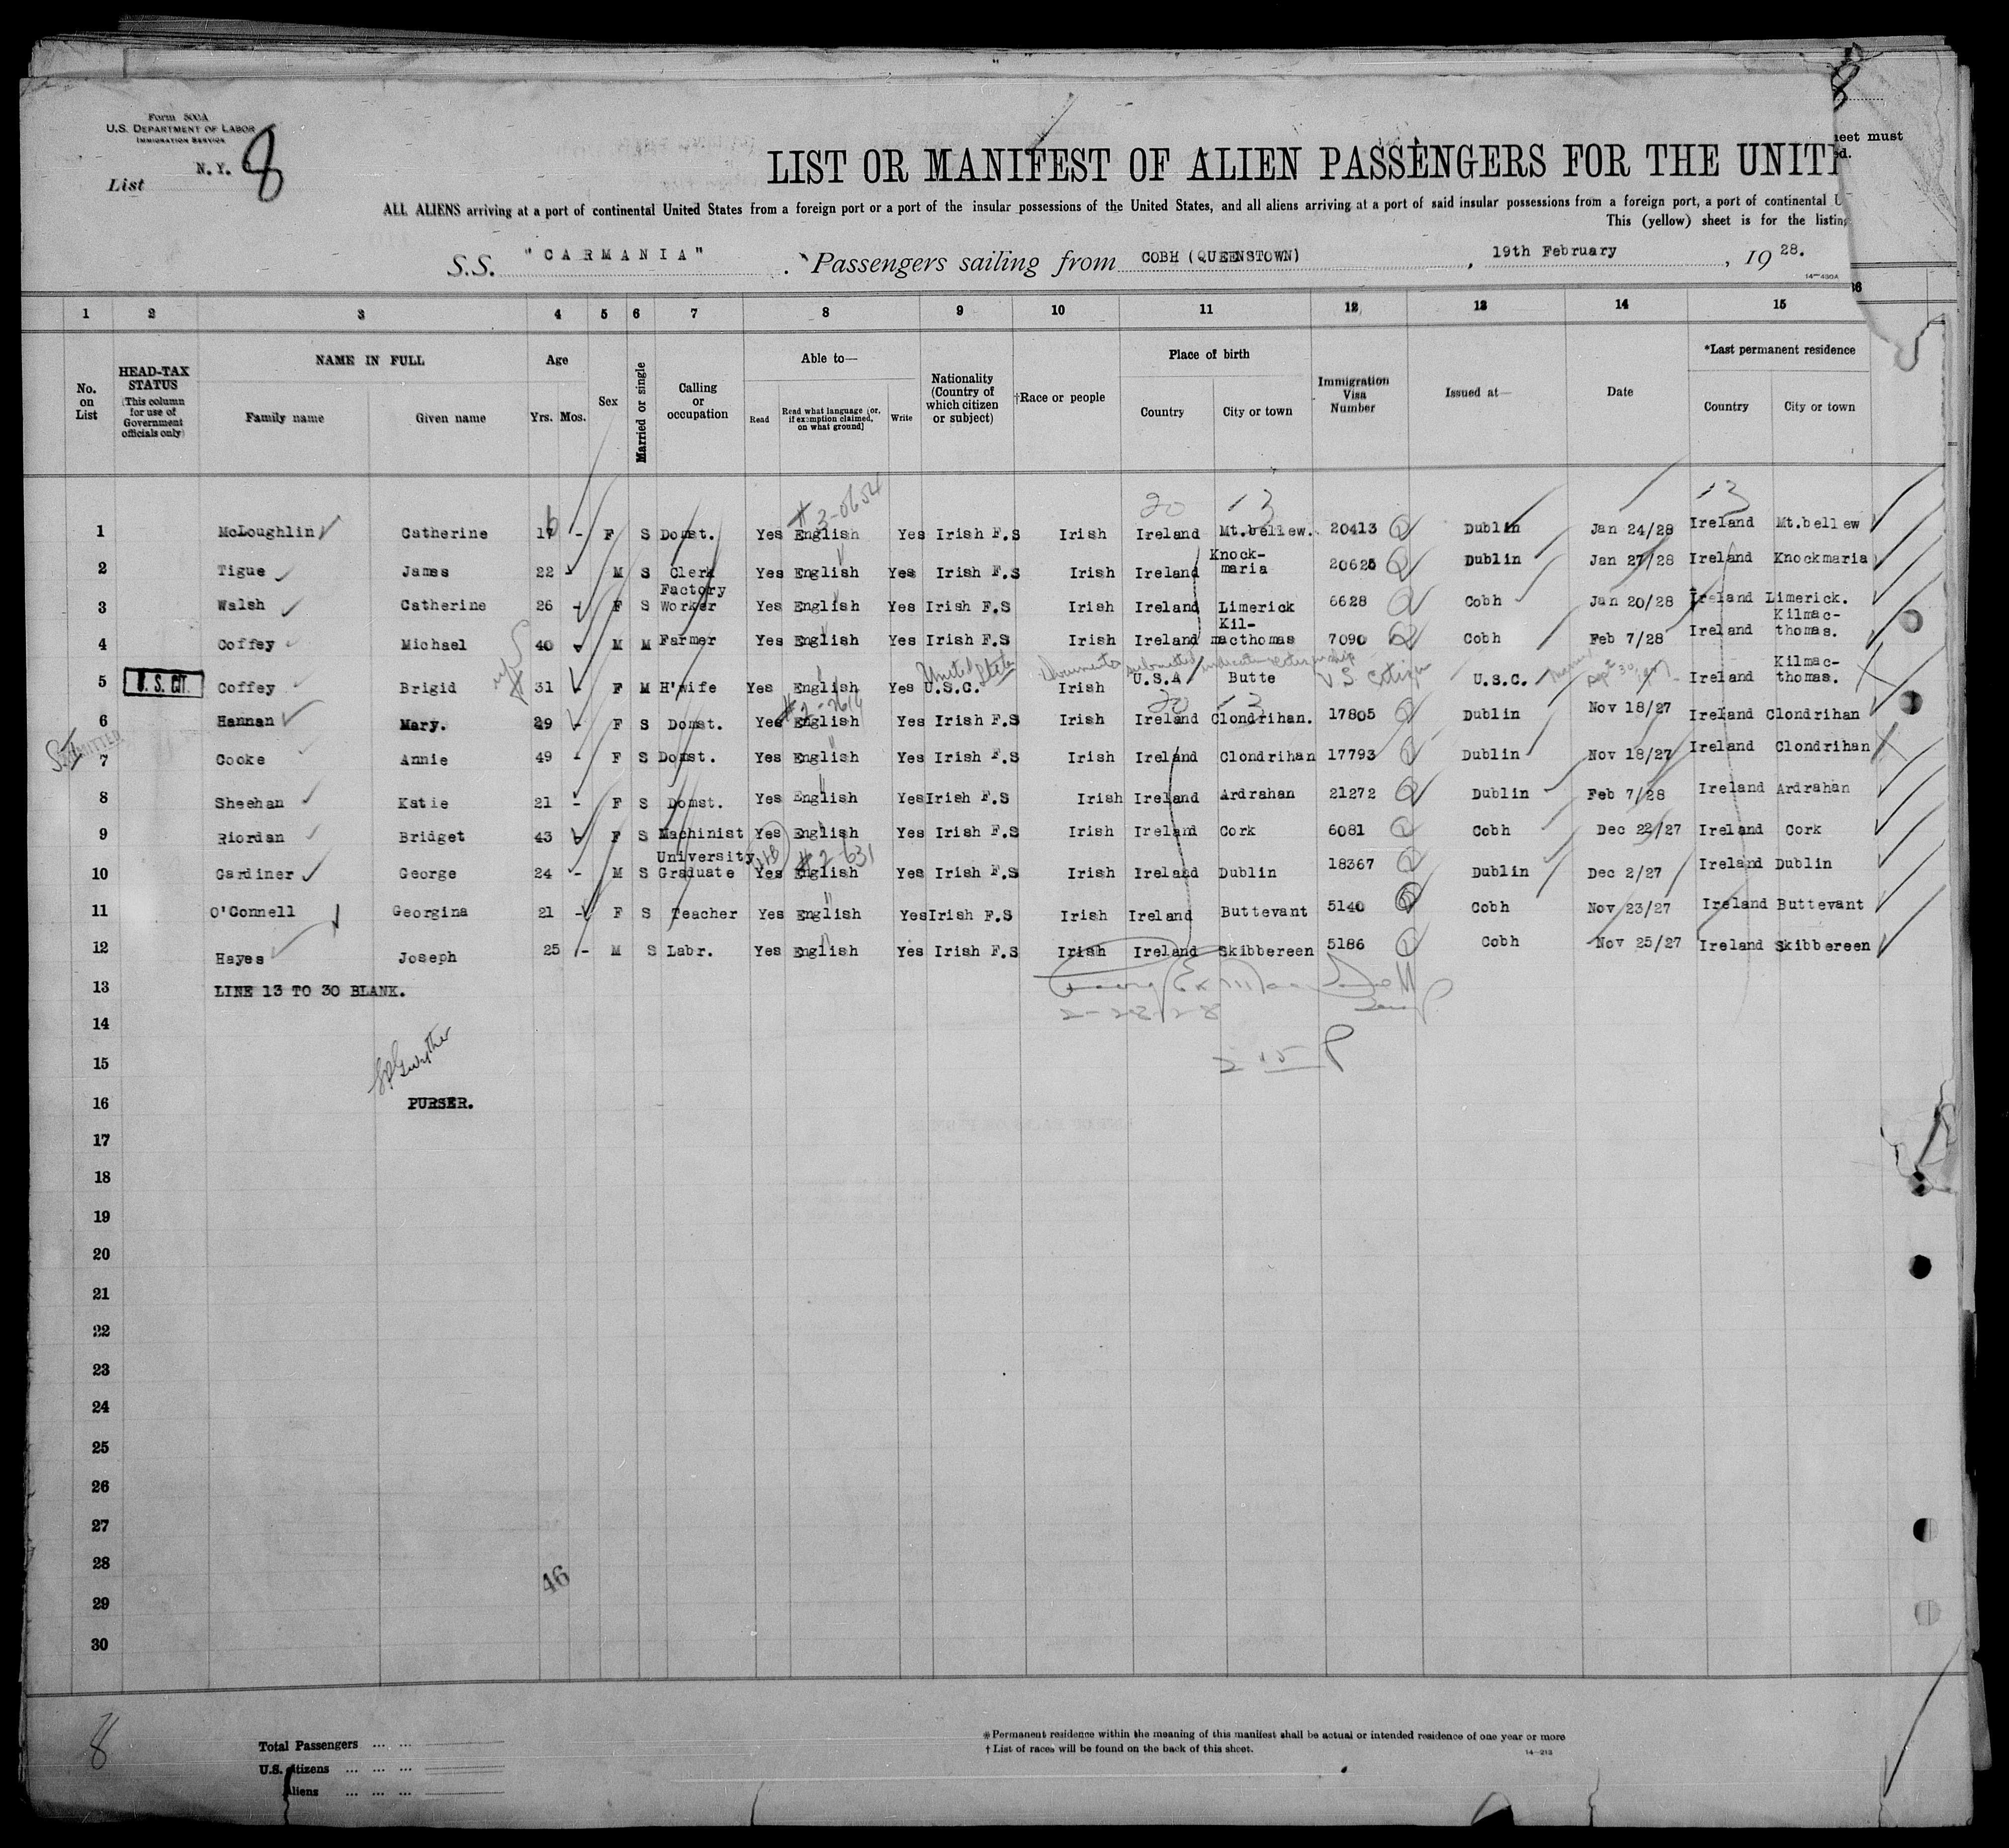 Form 500A
U.S. DEPARTMENT OF LABOR
IMMIGRATION SERVICE
N. Y. 8
List
8
eet must
d.
LIST OR MANIFEST OF ALIEN PASSENGERS FOR THE UNIT
ALL ALIENS arriving at a port of continental United States from a foreign port or a port of the insular possessions of the United States, and all aliens arriving at a port of said insular possessions from a foreign port, a port of continental U
This (yellow) sheet is for the listing
S.S. "CARMANIA" Passengers sailing from COBH (QUEENSTOWN), 19th February, 1928.
14-430A
1 2 3 4 5 6 7 8 9 10 11 12 13 14 15 36
No. on List
HEAD-TAX STATUS (This column for use of Government officials only)
NAME IN FULL
Family name Given name
Age
Yrs. Mos.
Sex
Married or single
Calling or occupation
Able to—
Read
Read what language [or, if exemption claimed, on what ground]
Write
Nationality (Country of which citizen or subject)
†Race or people
Place of birth
Country City or town
Immigration Visa Number
Issued at—
Date
*Last permanent residence
Country City or town
# 3-0654 20 13 13
1 McLoughlin Catherine 17 6 - F S Domst. Yes English Yes Irish F.S Irish Ireland Mt.bellew. 20413 Dublin Jan 24/28 Ireland Mt.bellew
2 Tigue James 22 - M S Clerk Yes English Yes Irish F.S Irish Ireland Knock-maria 20625 Dublin Jan 27/28 Ireland Knockmaria
3 Walsh Catherine 26 - F S Factory Worker Yes English Yes Irish F.S Irish Ireland Limerick 6628 Cobh Jan 20/28 Ireland Limerick.
4 Coffey Michael 40 - M M Farmer Yes English Yes Irish F.S Irish Ireland Kil-macthomas 7090 Cobh Feb 7/28 Ireland Kilmac-thomas.
United States Documents submitted indicate citizenship U S Citizen
5 U. S. CIT. Coffey Brigid 31 - F M H'wife Yes English Yes U.S.C. Irish U.S.A Butte U.S.C. Sept 30, Ireland Kilmac-thomas.
20 13
6 Hannan Mary. 29 - F S Domst. Yes English Yes Irish F.S Irish Ireland Clondrihan. 17805 Dublin Nov 18/27 Ireland Clondrihan
7 Cooke Annie 49 - F S Domst. Yes English Yes Irish F.S Irish Ireland Clondrihan 17793 Dublin Nov 18/27 Ireland Clondrihan
8 Sheehan Katie 21 - F S Domst. Yes English Yes Irish F.S Irish Ireland Ardrahan 21272 Dublin Feb 7/28 Ireland Ardrahan
9 Riordan Bridget 43 - F S Machinist Yes English Yes Irish F.S Irish Ireland Cork 6081 Cobh Dec 22/27 Ireland Cork
# 2-631
10 Gardiner George 24 - M S University Graduate Yes English Yes Irish F.S Irish Ireland Dublin 18367 Dublin Dec 2/27 Ireland Dublin
11 O'Connell Georgina 21 - F S Teacher Yes English Yes Irish F.S Irish Ireland Buttevant 5140 Cobh Nov 23/27 Ireland Buttevant
12 Hayes Joseph 25 - M S Labr. Yes English Yes Irish F.S Irish Ireland Skibbereen 5186 Cobh Nov 25/27 Ireland Skibbereen
13 LINE 13 TO 30 BLANK.
2-28-28
14
15
16 PURSER.
17
18
19
20
21
22
23
24
25
26
27
28
46
29
30
8
Total Passengers ... ...
U.S. citizens ... ... ...
Aliens ... ... ...
*Permanent residence within the meaning of this manifest shall be actual or intended residence of one year or more
†List of races will be found on the back of this sheet.
14—213